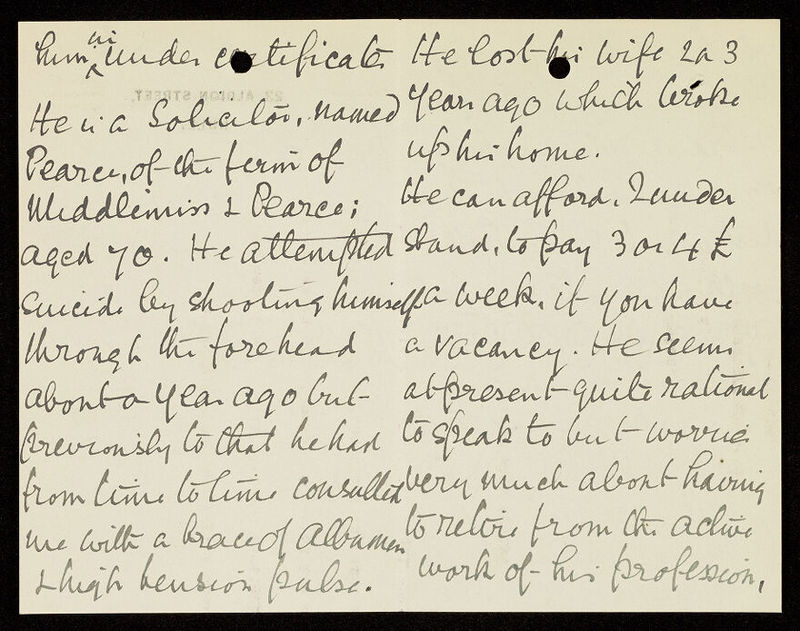 him in under certificate
He is a Solicitor, named
Pearce, of the firm of
Middlemiss & Pearce;
aged 70. He attempted
suicide by shooting himself
through the forehead
about a year ago but
previously to that he had
from time to time consulted
me with a trace of albumen
& high tension pulse.
He lost his wife 2 a 3
years ago which broke
up his home.
He can afford, I under
stand, to pay 3 or 4 £
a week, if you have
a vacancy. He seems
at present quite rational
to speak to but worries
very much about having
to retire from the active
work of his profession,